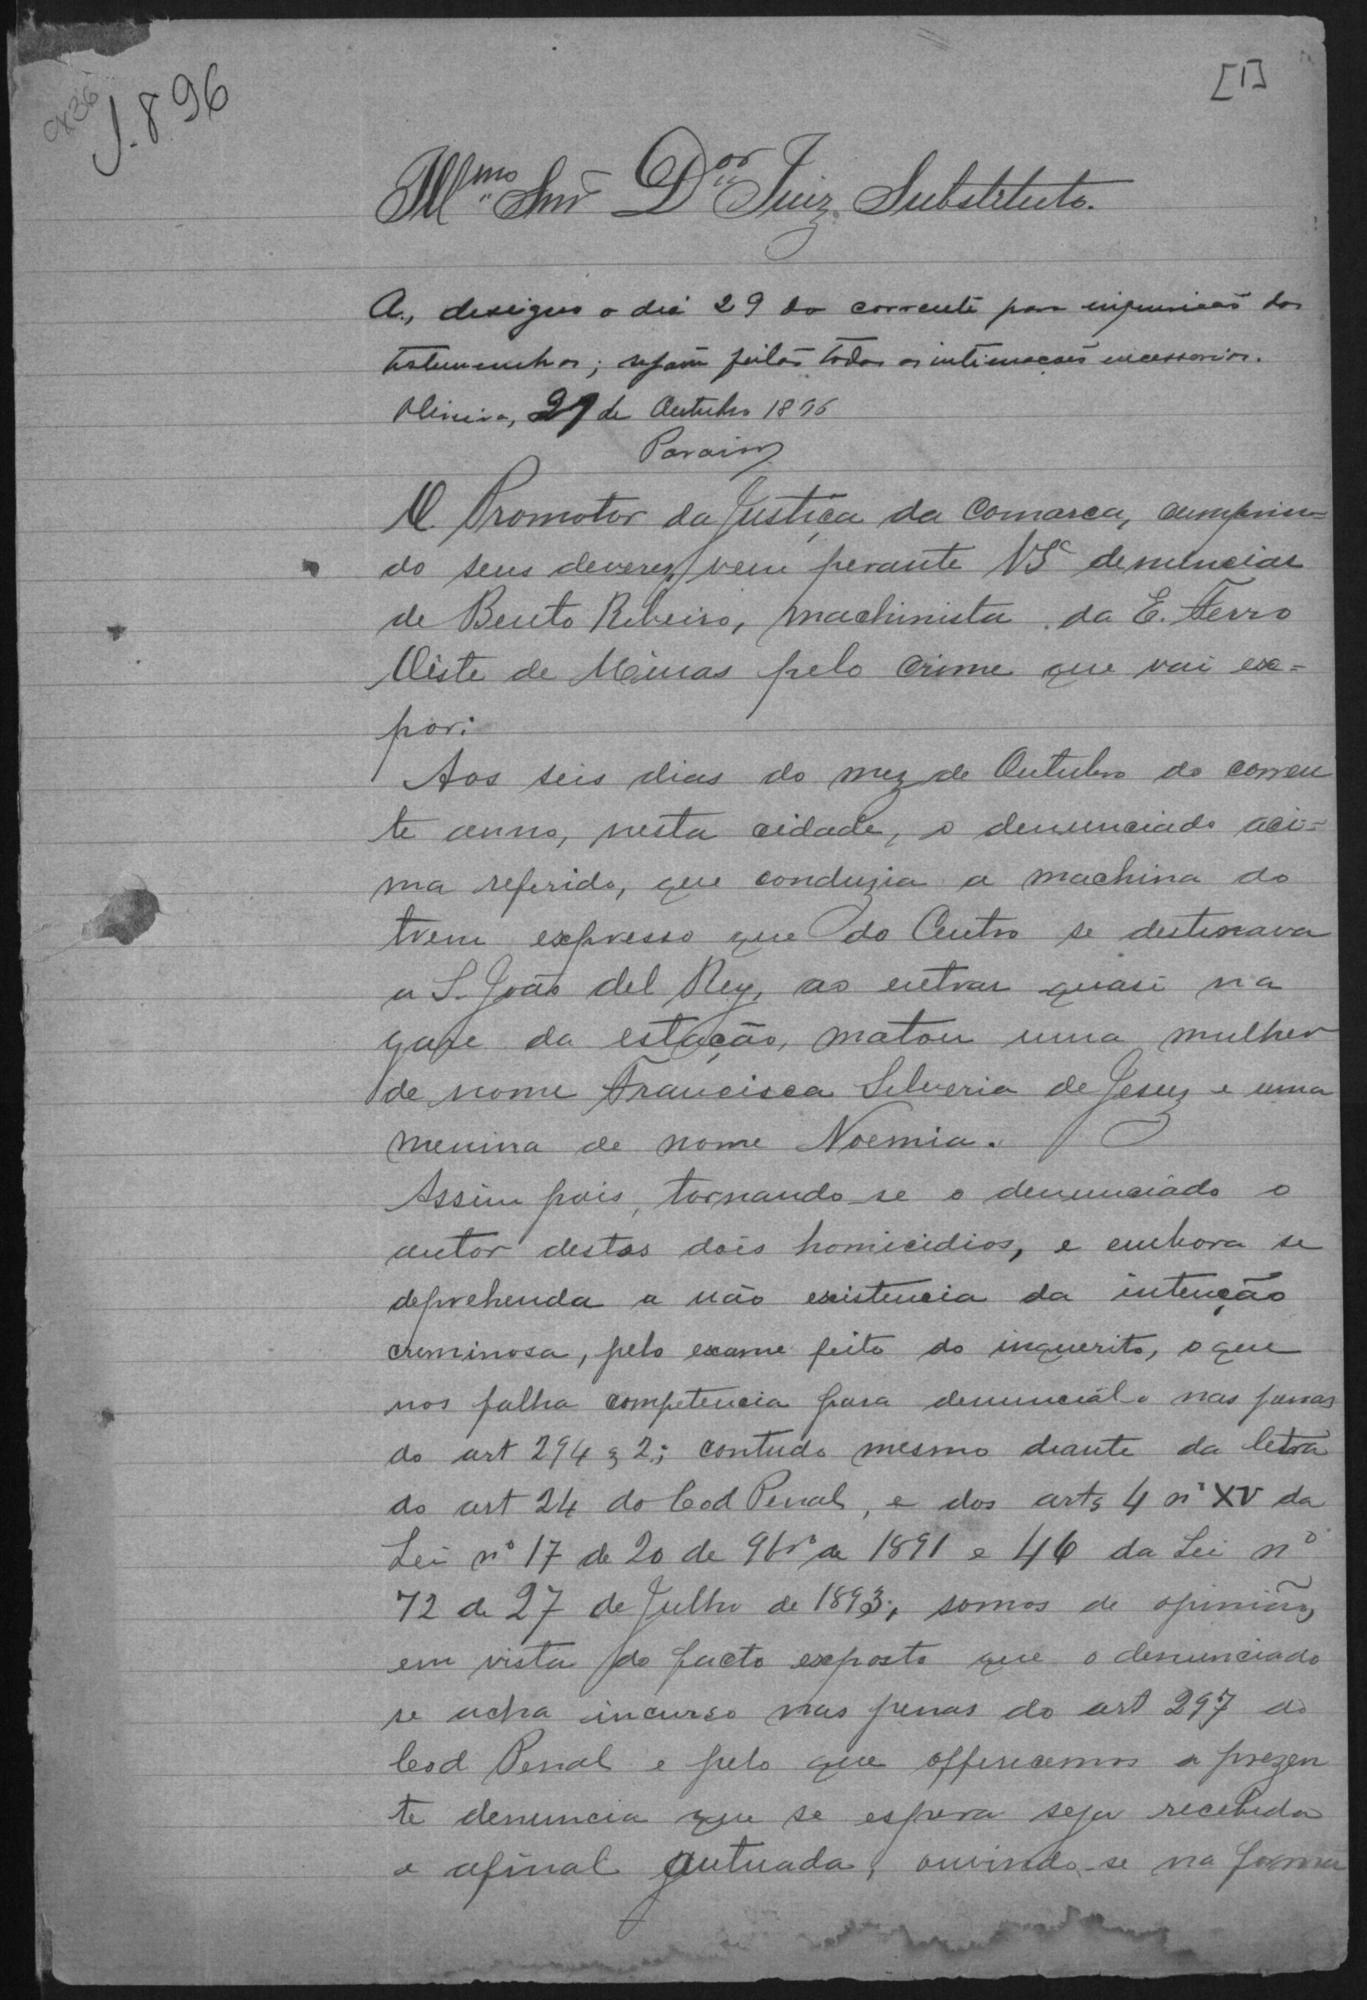 [1]
J. 896
Illmo Snr Dor Juiz Substituto.
A., designo o dia 29 do corrente para inquirição das
testemunhas; sejam feitas todas as intimações necessarias.
Oliveira, 27 de Outubro 1896
O Promotor da Justiça da Comarca, cumprin=
do seus deverez, vem perante VSª denunciar
de Bento Ribeiro, machinista da E. Ferro
Oeste de Minas pelo crime que vai ex=
por:
Aos seis dias do mez de Outubro do corren
te anno, nesta cidade, o denunciado aci=
ma referido, que conduzia a machina do
trem expresso que do Centro se destinava
a S. João del Rey, ao entrar quasi na
gare da estação, matou uma mulher
de nome Francisca Silveria de Jesuz e uma
menina de nome Noemia.
Assim pois, tornando-se o denunciado o
autor destes dois homicidios, e embora se
deprehenda a não existencia da intenção
criminosa, pelo exame feito do inquerito, o que
nos falha competencia para denuncial-o nas penas
do art 294 § 2; contudo mesmo deante da letra
do art 24 do Cod Penal, e dos arts 4 nº XV da
Lei nº 17 de 20 de 9bro de 1891 e 46 da Lei nº
72 de 27 de Julho de 1893, somos de opinião,
em vista do facto exposto que o denunciado
se acha incurso nas penas do art 297 do
Cod Penal e pelo que offerecemos a prezen
te denuncia que se espera seja recebida
e afinal autuada, ouvindo-se na forma